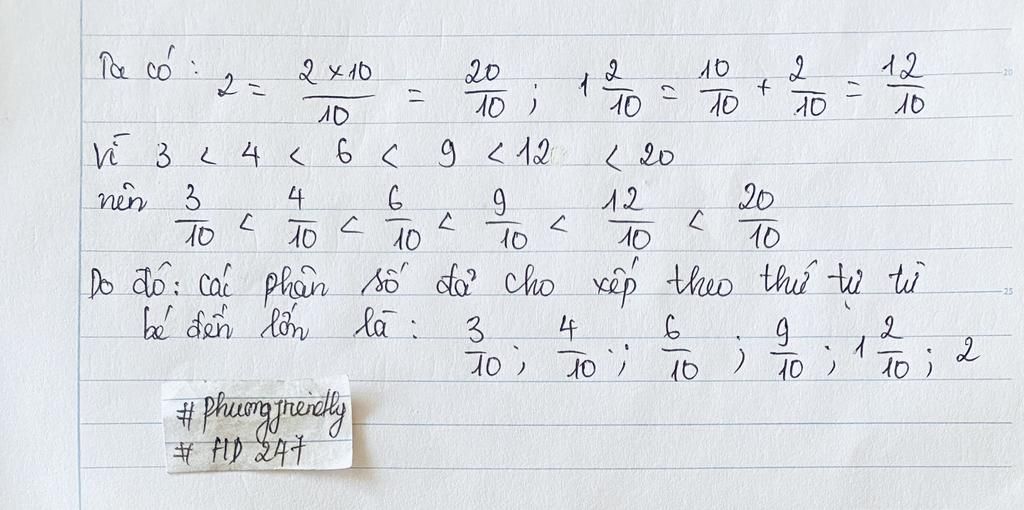 Ta có: 2 = 2 × 10 / 10 = 20/10 ; 1 2/10 = 10/10 + 2/10 = 12/10
Vì 3 < 4 < 6 < 9 < 12 < 20
nên 3/10 < 4/10 < 6/10 < 9/10 < 12/10 < 20/10
Do đó: các phân số đã cho xếp theo thứ tự từ
bé đến lớn là: 3/10 ; 4/10 ; 6/10 ; 9/10 ; 1 2/10 ; 2
# phuongfriendly
# FID 247
20
25